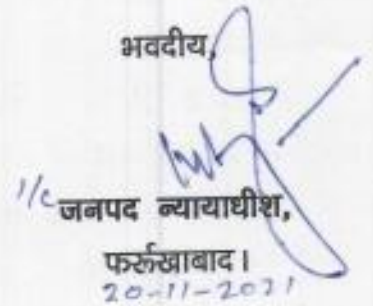 भवदीय,
I/c जनपद न्यायाधीश,
फर्रूखाबाद।
20-11-2021